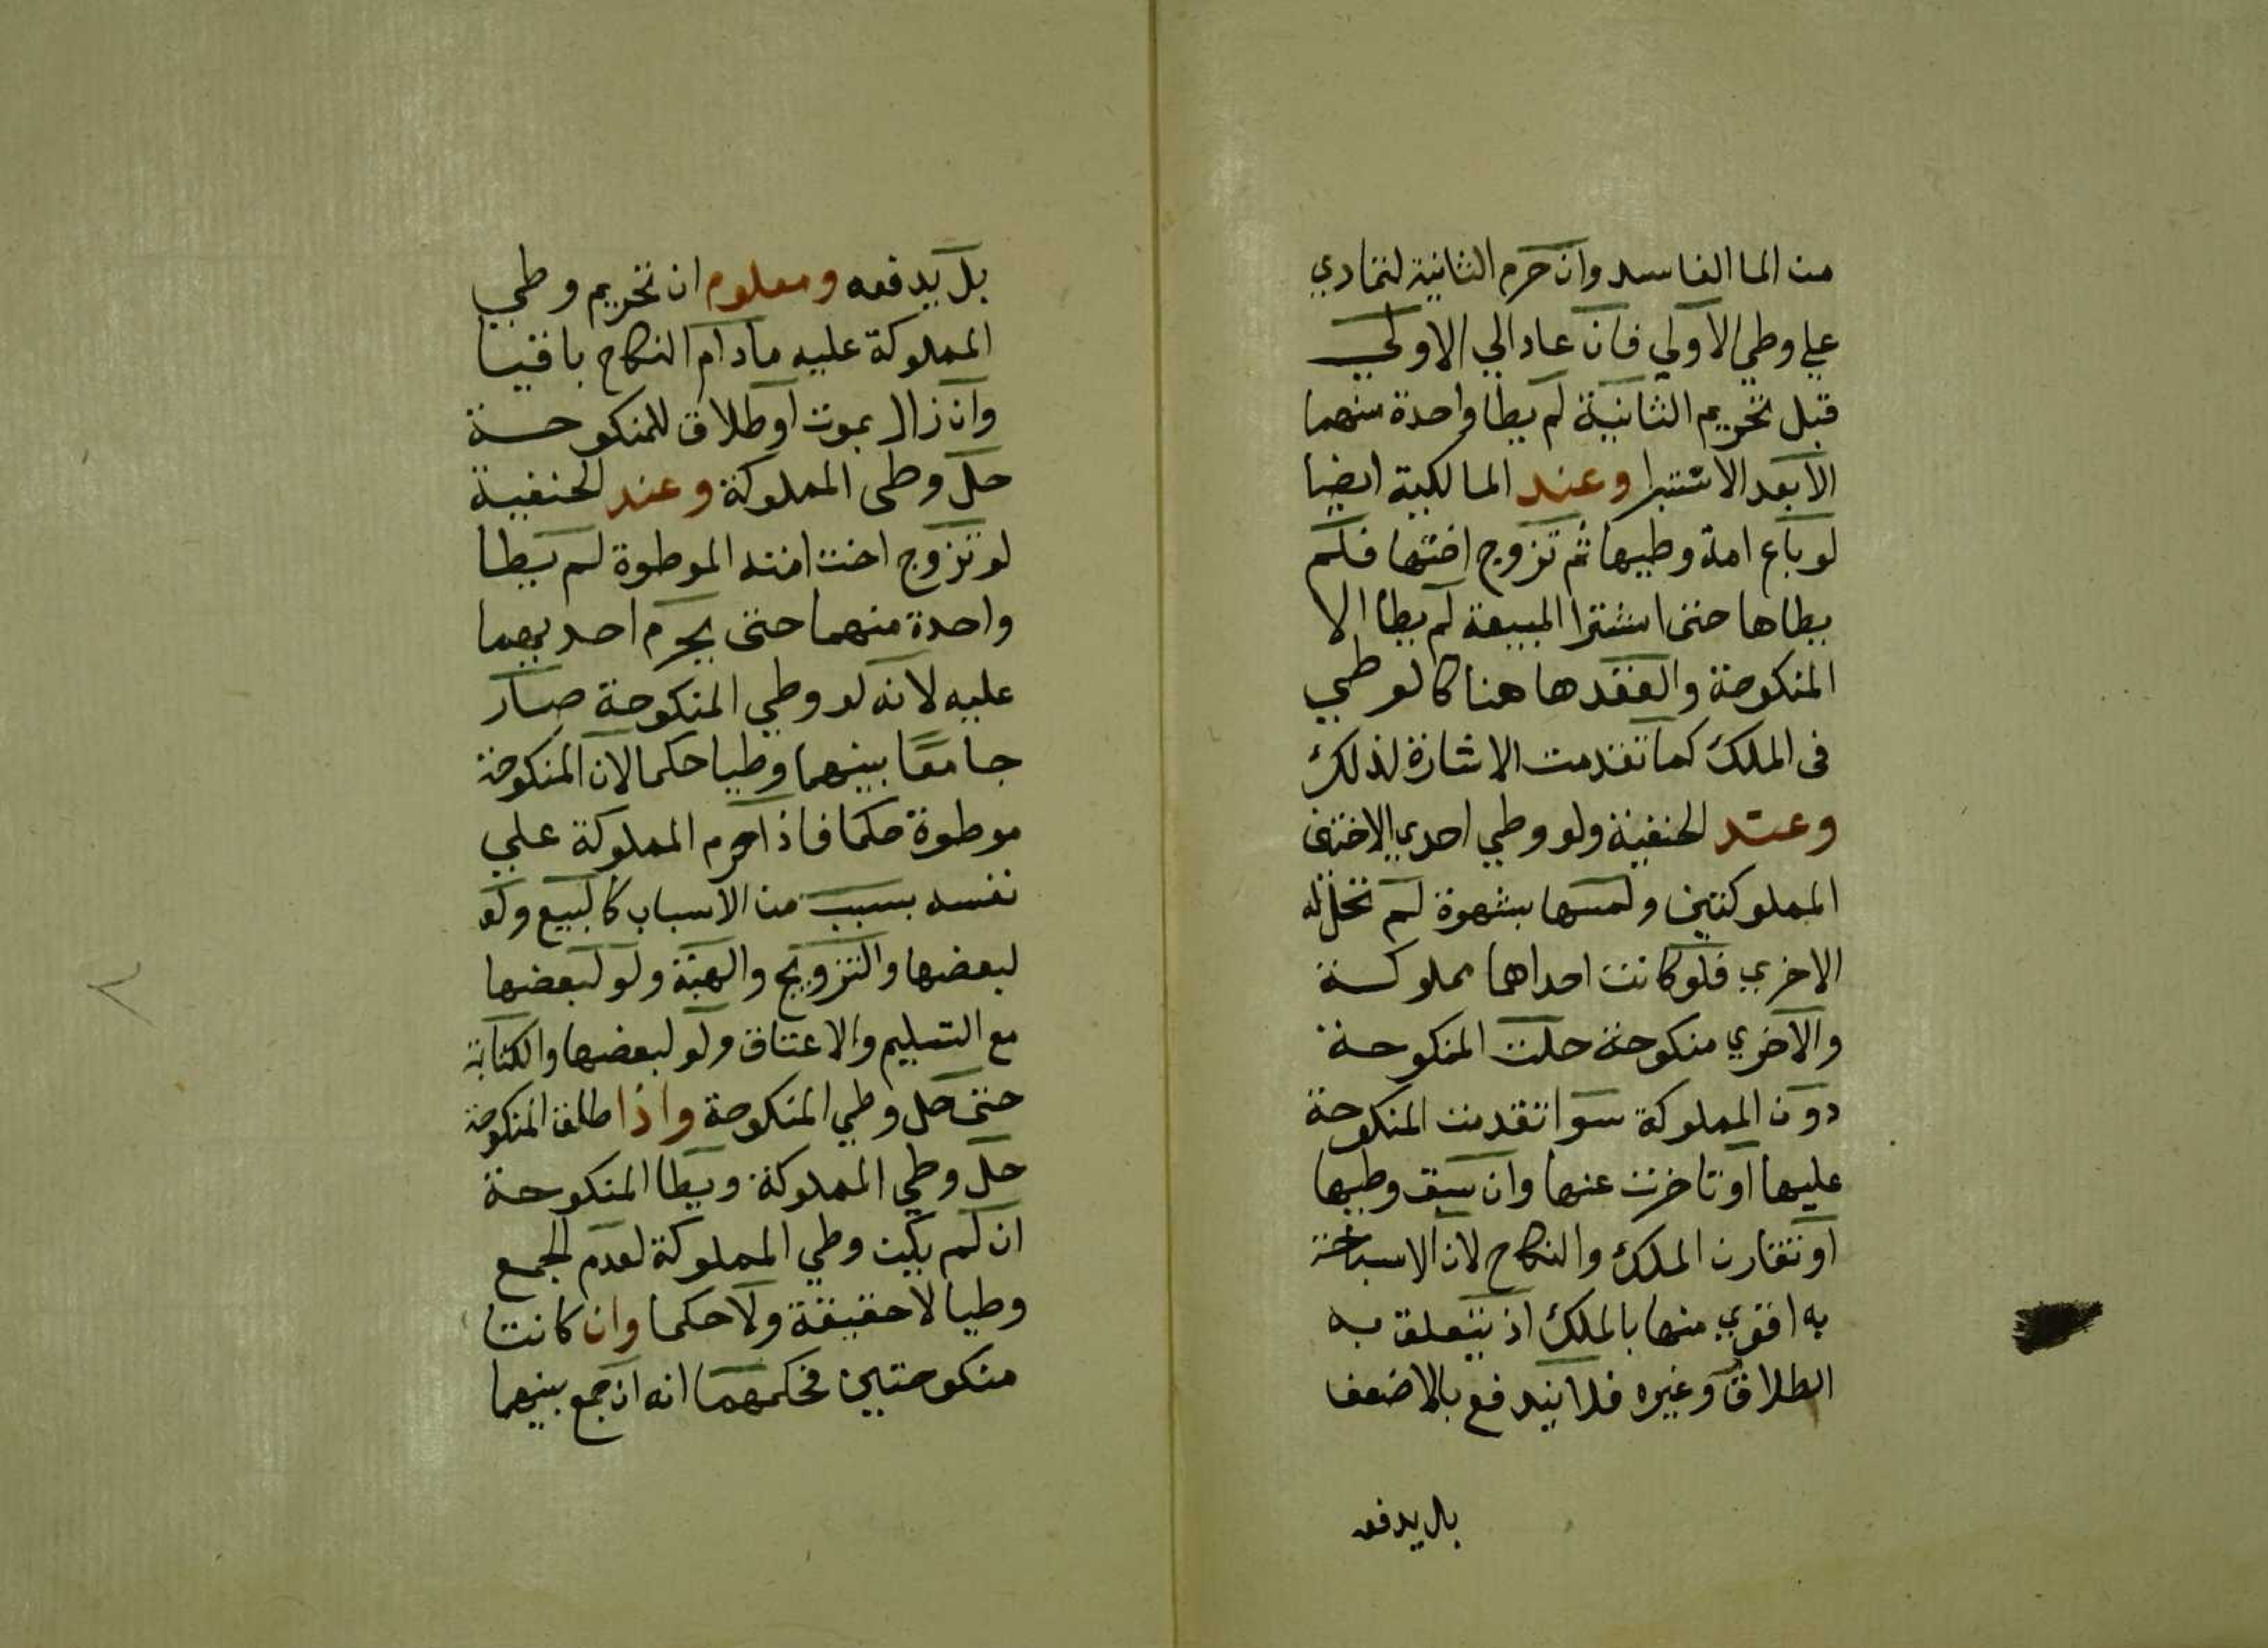 من الما الفاسد وان حرم الثانية لتمادي
علي وطي الاولي فان عاد الي الاولي
قبل تحريم الثانية لم يطا واحدة منهما
الا بعد الاستبرا وعند المالكية ايضا
لو باع امة وطيها ثم تزوج اختها فلم
يطاها حتى اشترا المبيعة لم يطا الا
المنكوحة والعقد هاهنا كالوطي
فى الملك كما تقدمت الاشارة لذلك
وعند الحنفية ولو وطي احدي الاختين
المملوكتين ولمسها بشهوة لم تحل له
الاخري فلو كانت احداهما مملوكة
والاخري منكوحة حلت المنكوحة
دون المملوكة سوا تقدمت المنكوحة
عليها او تاخرت عنها وان سبق وطيها
او تقارن الملك والنكاح لان الاستباحة
به اقوي منها بالملك اذ يتعلق به
الطلاق وغيره فلا يندفع بالاضعف
بل يدفعه
بل يدفعه ومعلوم ان تحريم وطي
المملوكة عليه مادام النكاح باقيا
وان زال بموت او طلاق للمنكوحة
حل وطى المملوكة وعند الحنفية
لو تزوج اخت امته الموطوة لم يطا
واحدة منهما حتى يحرم احديهما
عليه لانه لو وطي المنكوحة صار
جامعا بينهما وطيا حكما لان المنكوحة
موطوة حكما فاذا حرم المملوكة علي
نفسه بسبب من الاسباب كالبيع ولو
لبعضها والتزويج والهبة ولو لبعضها
مع التسليم والاعتاق ولو لبعضها والكتابة
حتى حل وطي المنكوحة واذا طلق المنكوحة
حل وطي المملوكة ويطا المنكوحة
ان لم يكن وطي المملوكة لعدم الجمع
وطيا لا حقيقة ولا حكما وان كانتا
منكوحتين فحكمهما انه ان جمع بينهما